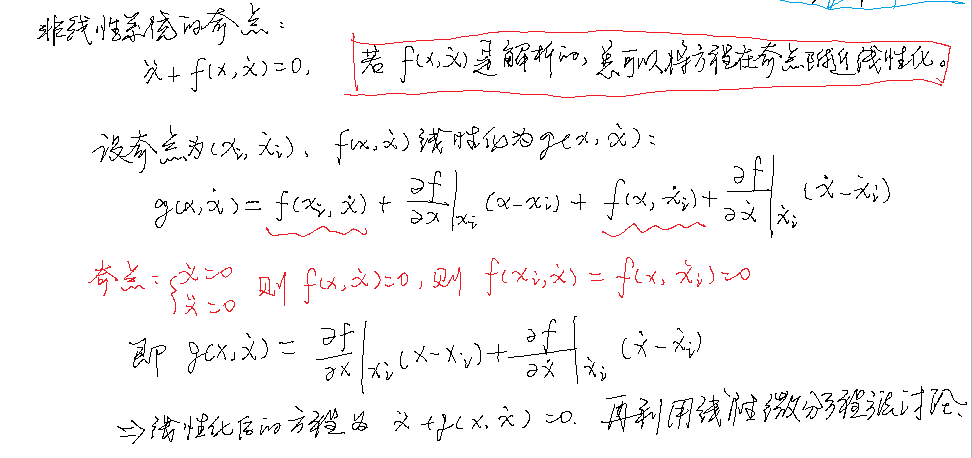 非线性系统的奇点：
ẍ + f(x, ẋ) = 0， 若 f(x, ẋ) 是解析的，总可以将方程在奇点附近线性化。
设奇点为 (xᵢ, ẋᵢ)、 f(x, ẋ) 线性化为 g(x, ẋ)：
g(x, ẋ) = f(xᵢ, ẋ) + ∂f/∂x|xᵢ (x − xᵢ) + f(x, ẋᵢ) + ∂f/∂ẋ|ẋᵢ (ẋ − ẋᵢ)
奇点：{ẋ = 0 ẍ = 0 则 f(x, ẋ) = 0，则 f(xᵢ, ẋ) = f(x, ẋᵢ) = 0
即 g(x, ẋ) = ∂f/∂x|xᵢ (x − xᵢ) + ∂f/∂ẋ|ẋᵢ (ẋ − ẋᵢ)
⇒ 线性化后的方程为 ẍ + g(x, ẋ) = 0. 再利用线性微分方程法讨论.